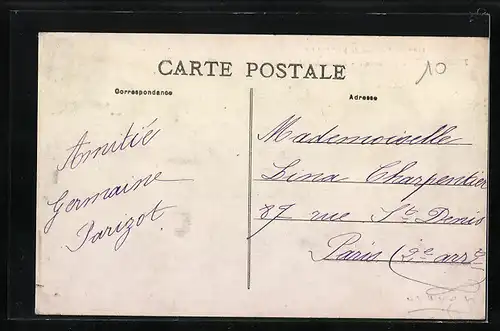 CARTE POSTALE
10
Correspondance
Adresse
Amitié
Germaine
Parizot
Mademoiselle
Lina Charpentier
87 rue St Denis
Paris (2e arrt